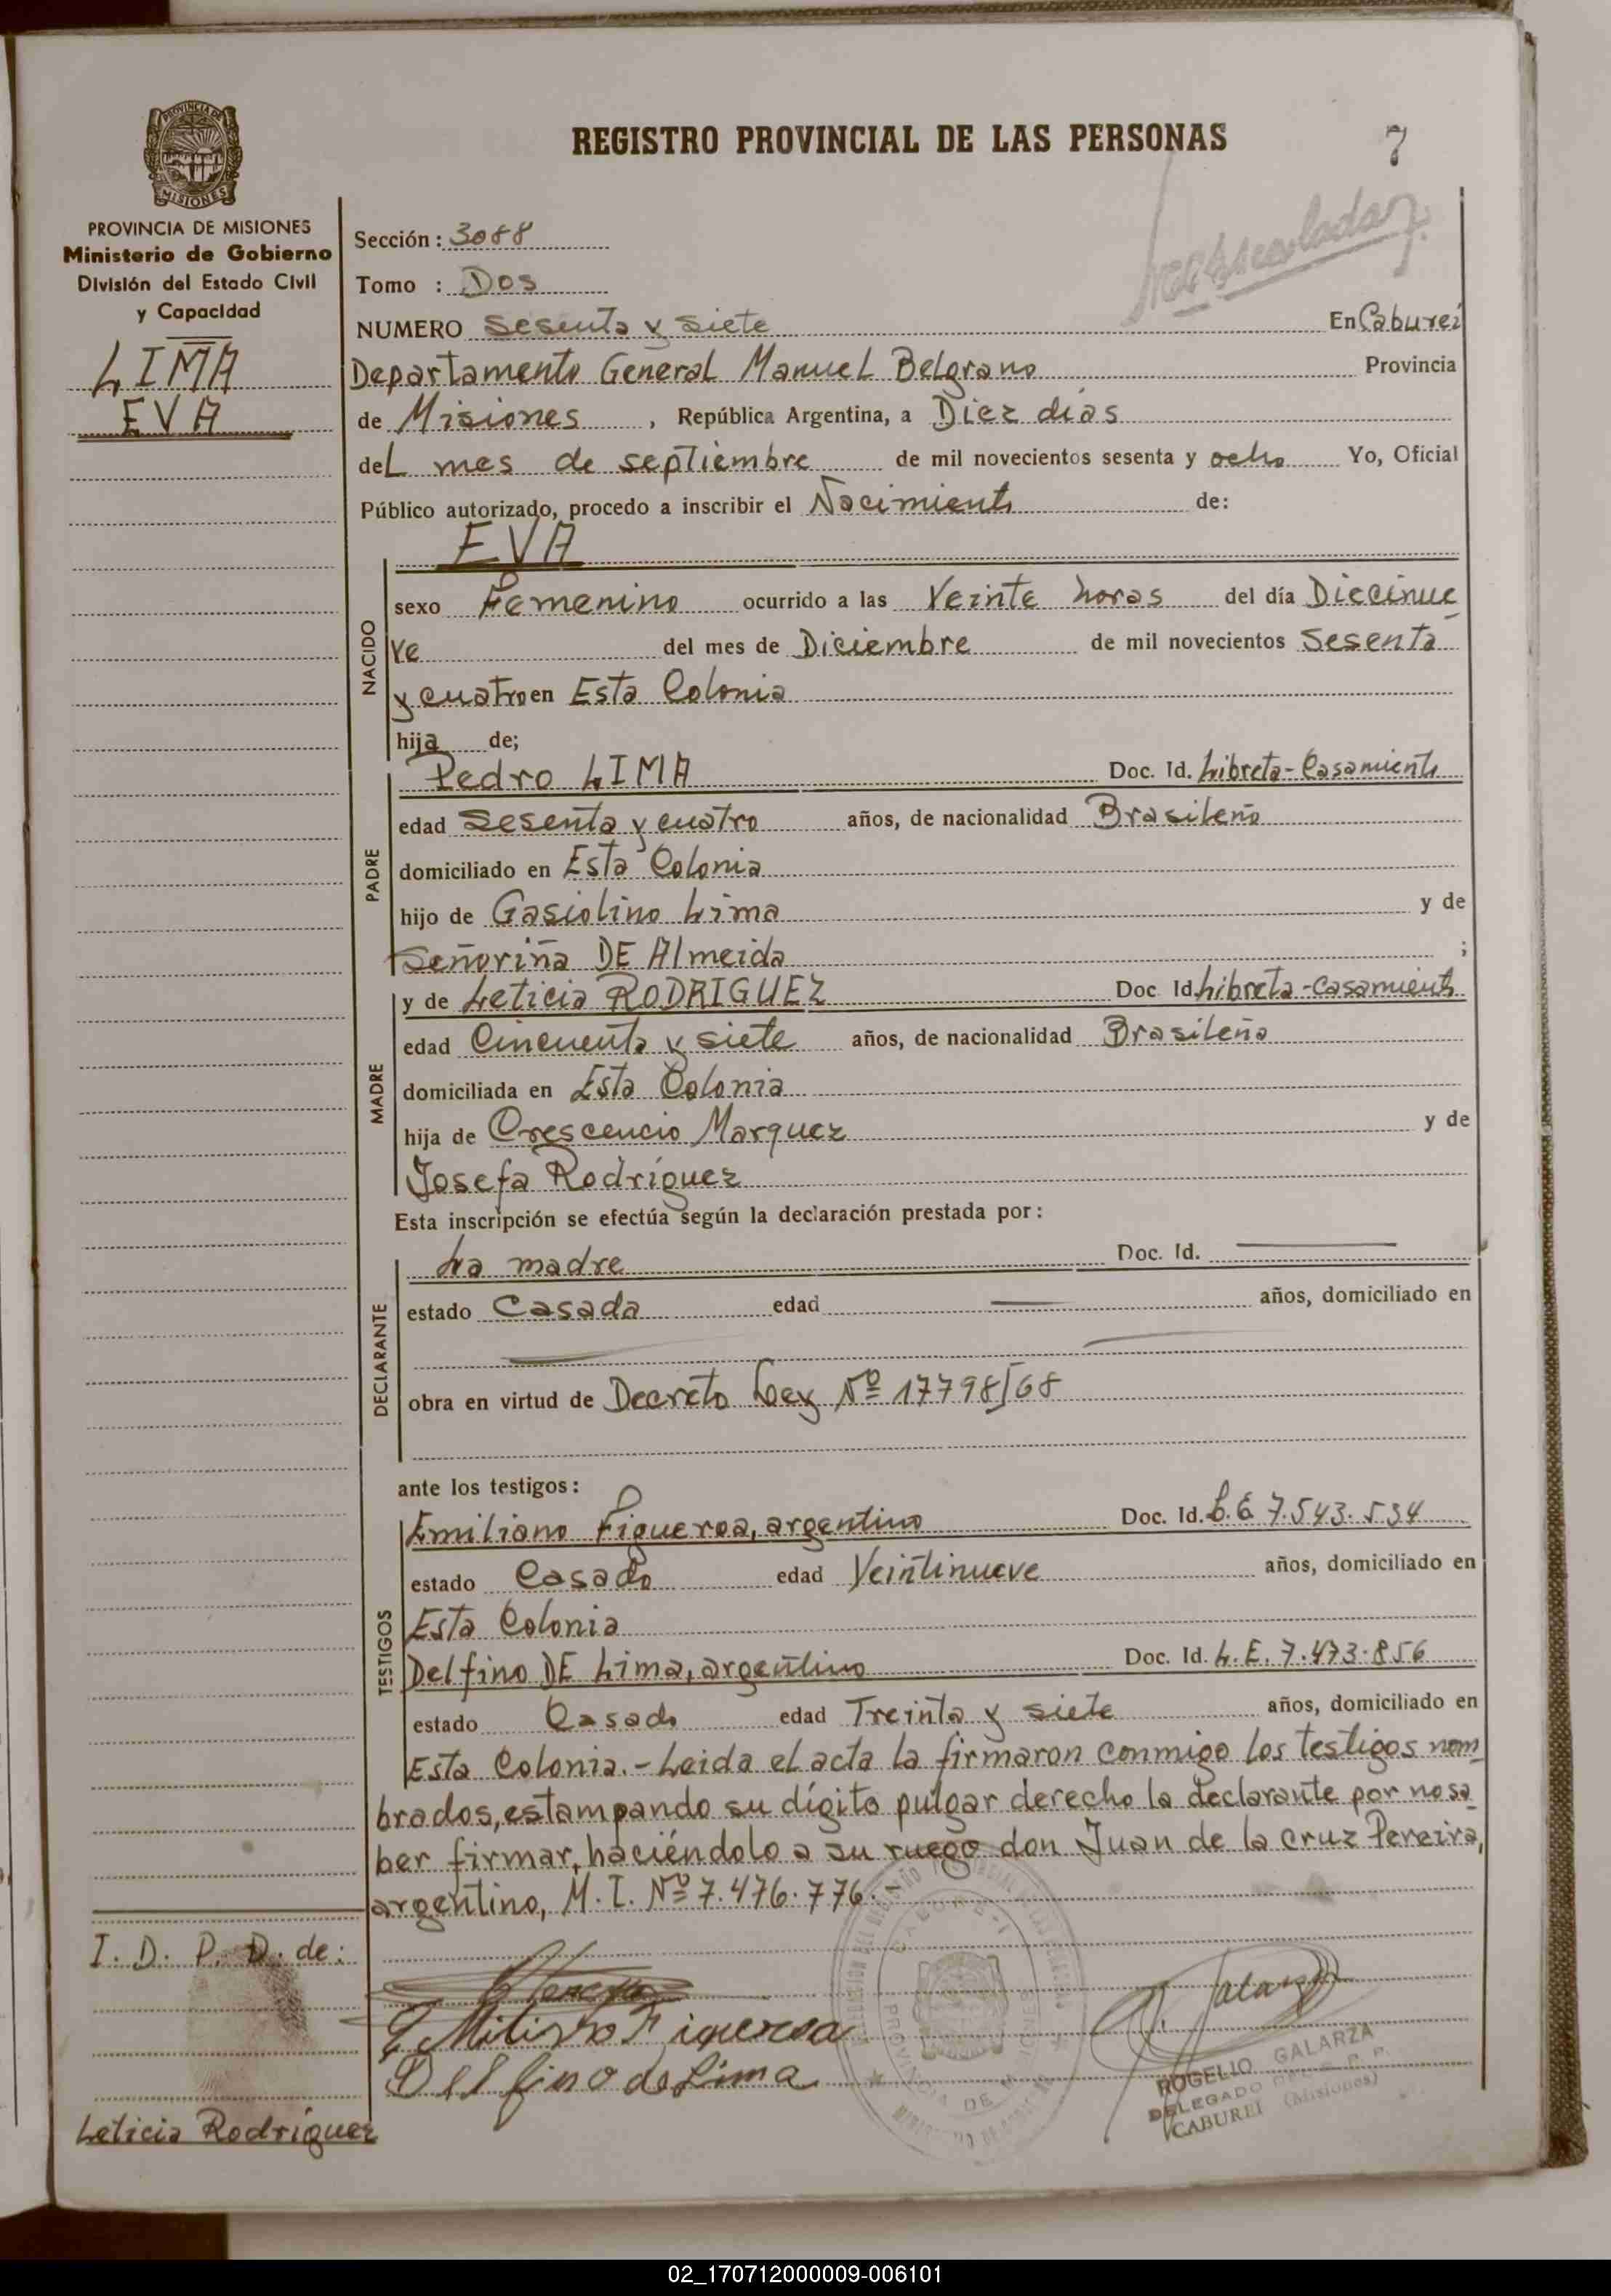 REGISTRO PROVINCIAL DE LAS PERSONAS
7
PROVINCIA DE
MISIONES
PROVINCIA DE MISIONES
Ministerio de Gobierno
División del Estado Civil
y Capacidad
LIMA
EVA
Sección : 3088
Tomo : Dos
NUMERO Sesenta y siete En Caburei
Departamento General Manuel Belgrano Provincia
de Misiones , República Argentina, a Diez dias
del mes de septiembre de mil novecientos sesenta y ocho Yo, Oficial
Público autorizado, procedo a inscribir el Nacimiento de:
EVA
NACIDO
sexo Femenino ocurrido a las Veinte horas del día Diecinue
ve del mes de Diciembre de mil novecientos Sesenta
y cuatro en Esta Colonia
hija de;
PADRE
Pedro LIMA Doc. Id. Libreta-Casamiento
edad Sesenta y cuatro años, de nacionalidad Brasileño
domiciliado en Esta Colonia
hijo de Gasiolino Lima y de
Señoriña DE Almeida ;
MADRE
y de Leticia RODRIGUEZ Doc Id Libreta-casamiento
edad Cincuenta y siete años, de nacionalidad Brasileña
domiciliada en Esta Colonia
hija de Crescencio Marquez y de
Josefa Rodríguez
Esta inscripción se efectúa según la declaración prestada por :
DECLARANTE
La madre Doc. Id.
estado Casada edad años, domiciliado en
obra en virtud de Decreto Ley Nº 17798/68
ante los testigos :
TESTIGOS
Emiliano Figueroa, argentino Doc. Id. L.E 7.543.534
estado Casado edad Veintinueve años, domiciliado en
Esta Colonia
Delfino DE Lima, argentino Doc. Id. L.E. 7.473.856
estado Casado edad Treinta y siete años, domiciliado en
Esta Colonia.- Leida el acta la firmaron conmigo los testigos nom
brados, estampando su dígito pulgar derecho la declarante por no sa
ber firmar, haciéndolo a su ruego don Juan de la cruz Pereira,
argentino, M.I. Nº 7.476.776.-
I. D. P. D. de:
Emiliano Figueroa
Delfino de Lima
Leticia Rodríguez
Galarza
ROGELIO GALARZA
DELEGADO
CABUREI (Misiones)
PROVINCIA DE MISIONES
02_170712000009-006101